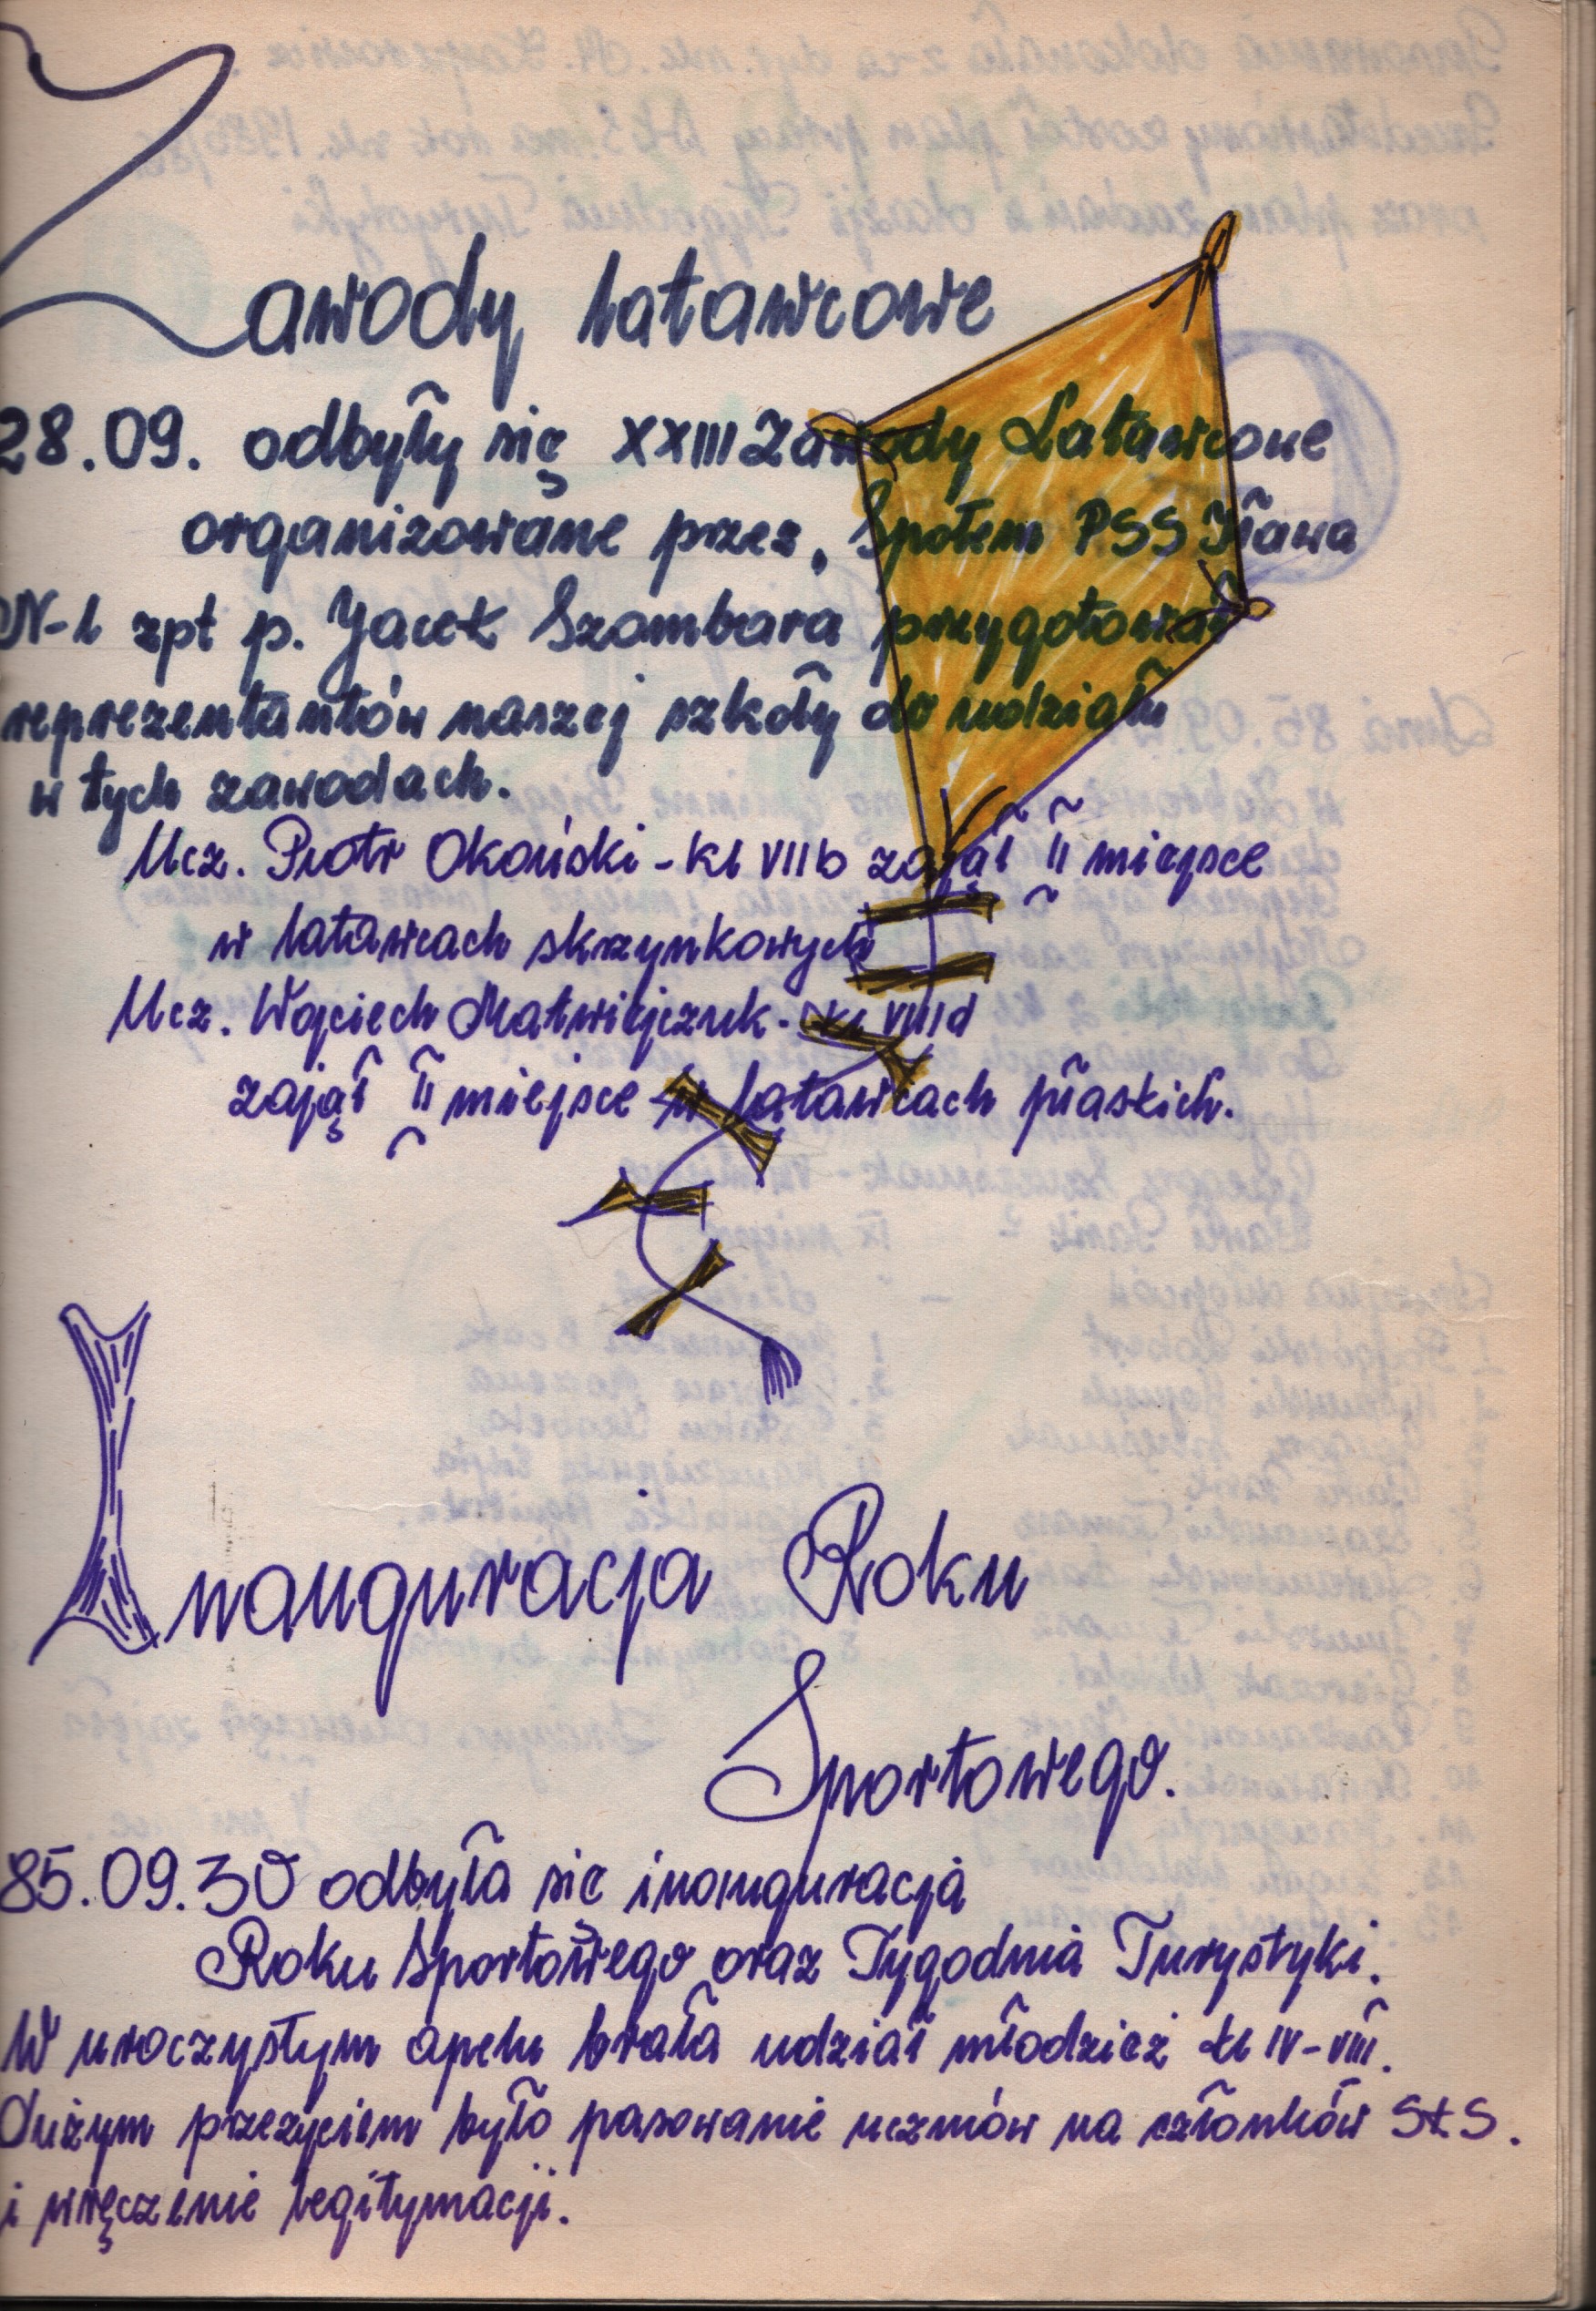 Zawody latawcowe
28.09. odbyły się XXIII Zawody Latawcowe
organizowane przez, Społem PSS Iława
N-l zpt p. Jacek Szombara przygotował
reprezentantów naszej szkoły do udziału
w tych zawodach.
Ucz. Piotr Okoński - kl VII b zajął II miejsce
w latawcach skrzynkowych
Ucz. Wojciech Matwiejczuk - kl VIII d
zajął II miejsce w latawcach płaskich.
Inauguracja Roku
Sportowego.
85.09.30 odbyła się inauguracja
Roku Sportowego oraz Tygodnia Turystyki.
W uroczystym apelu brała udział młodzież kl IV-VIII.
Dużym przeżyciem było pasowanie uczniów na członków SKS.
i wręczenie legitymacji.